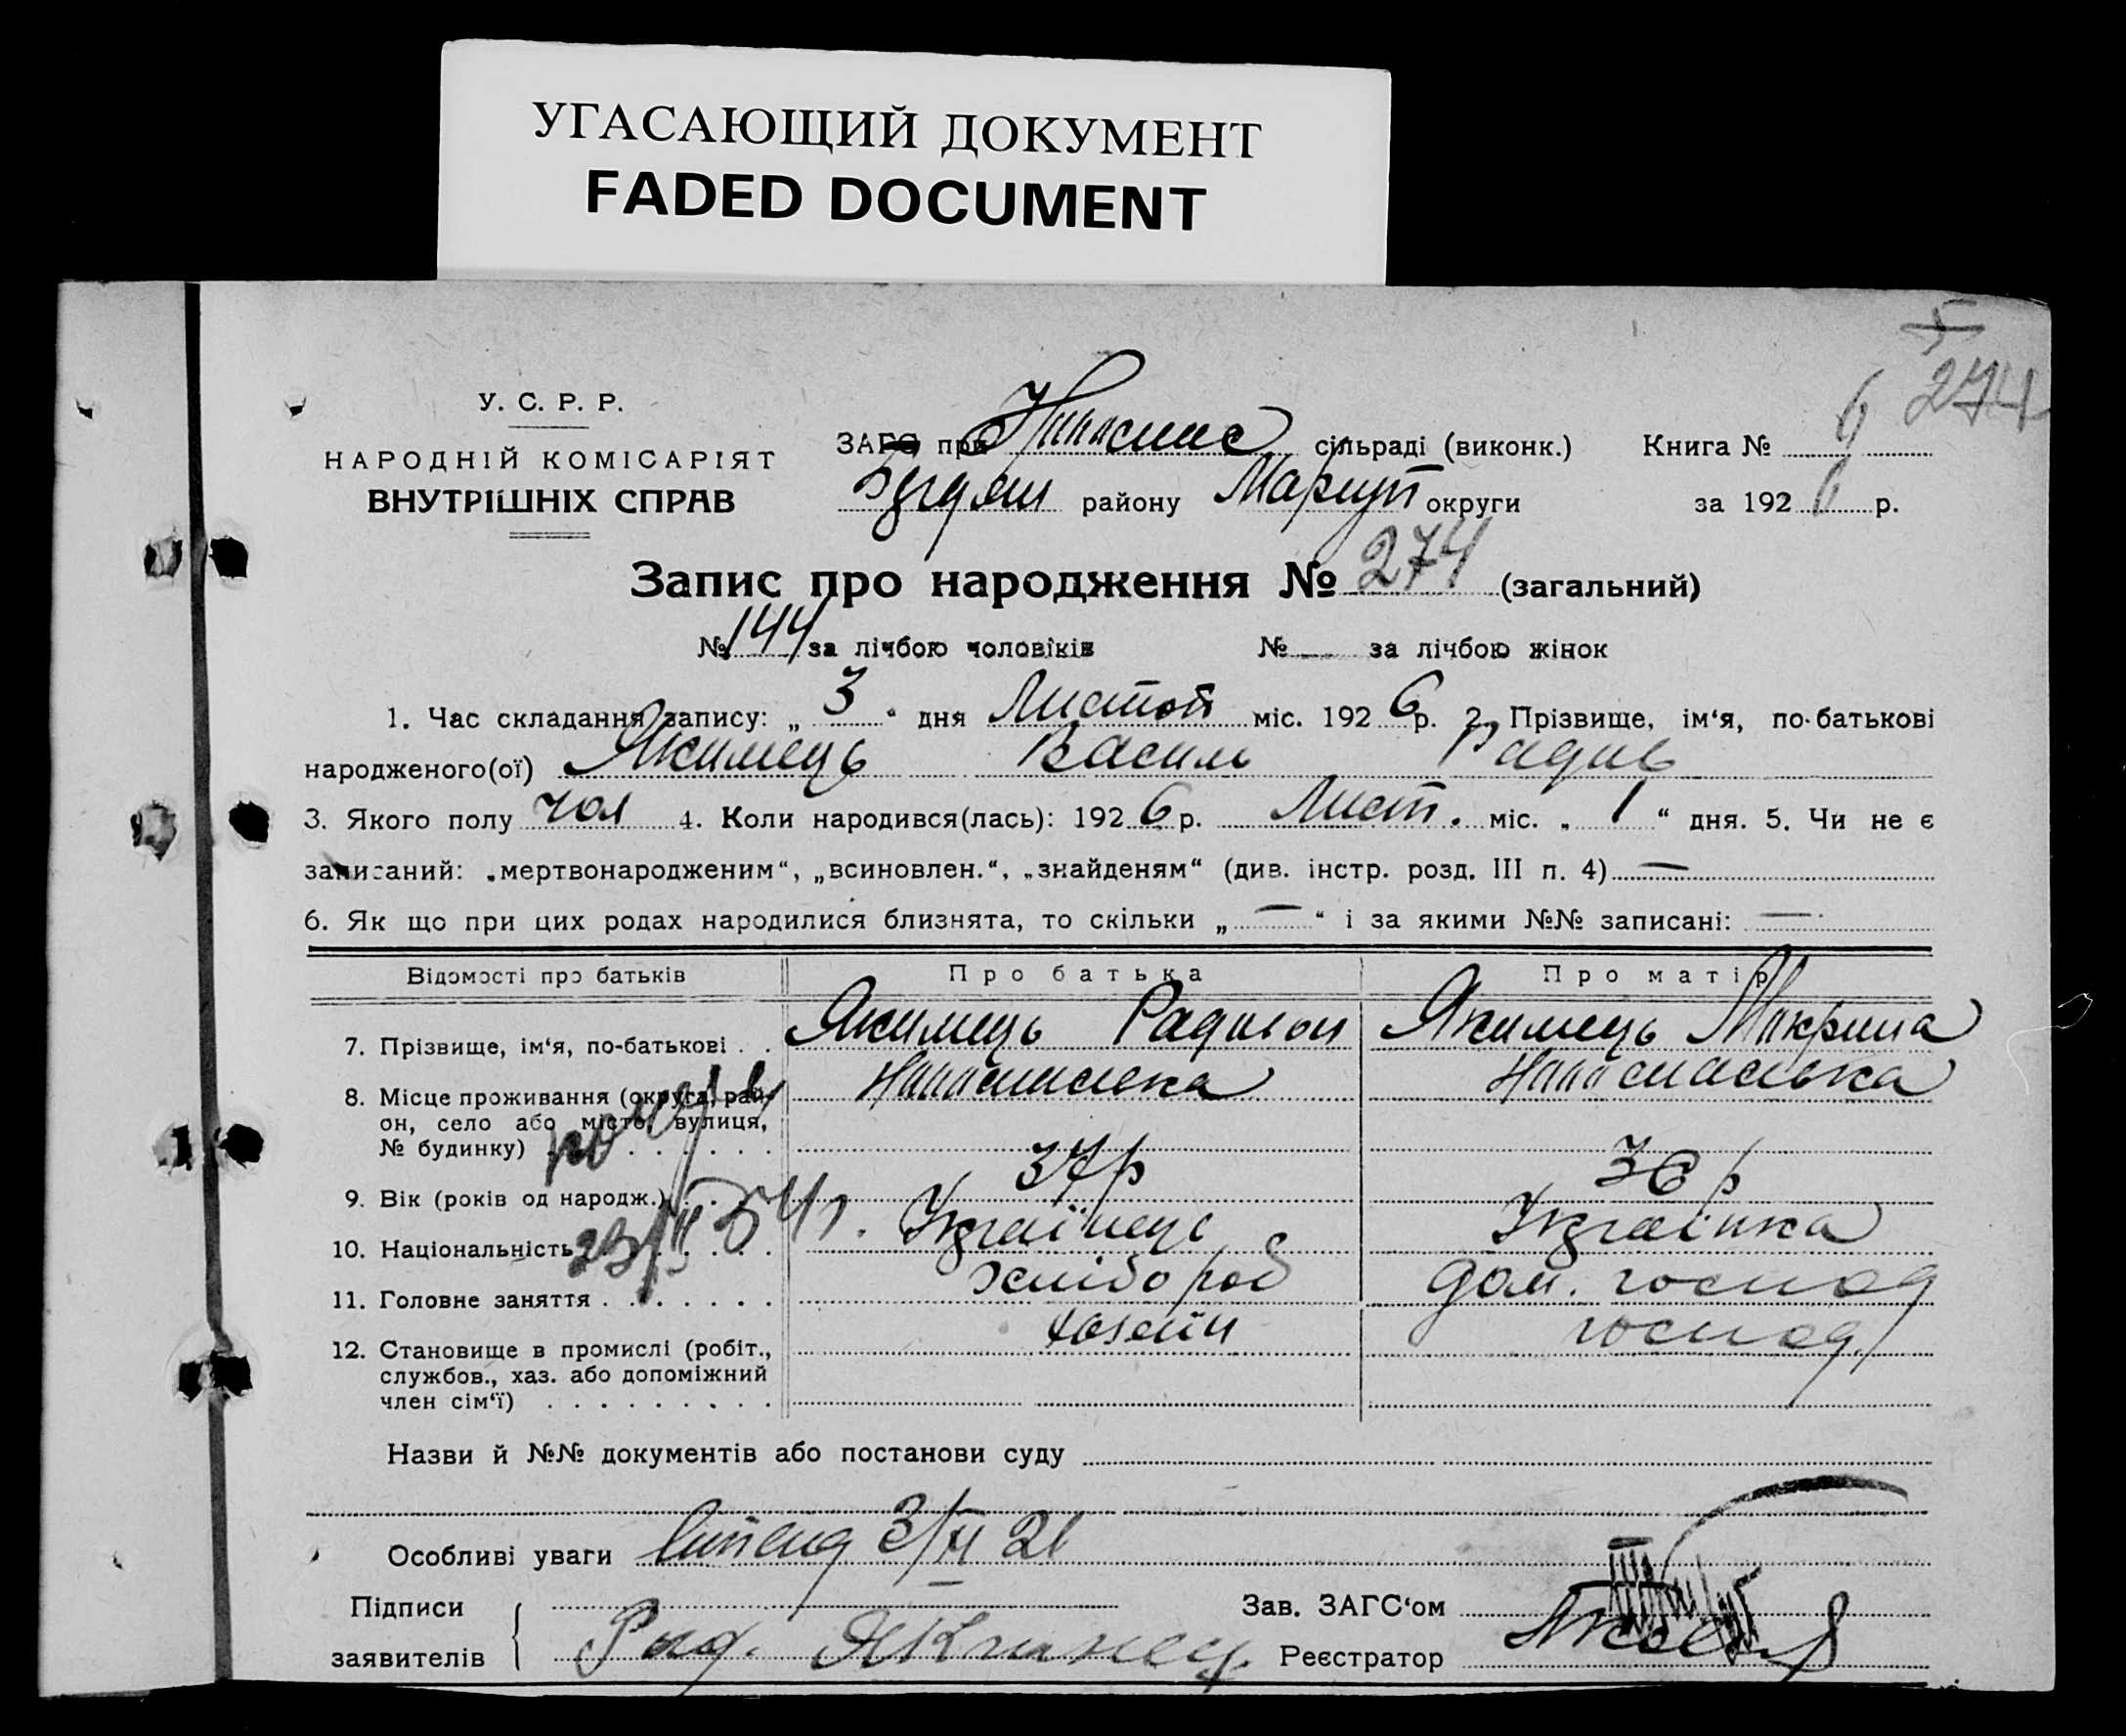 УГАСАЮЩИЙ ДОКУМЕНТ
FADED DOCUMENT
5
274
У. С. Р. Р.
НАРОДНІЙ КОМІСАРІЯТ
ВНУТРІШНІХ СПРАВ
ЗАГС при сільраді (виконк.) Книга № 6
району Маріуп округи за 1926 р.
Запис про народження № 274 (загальний)
№ 144 за лічбою чоловіків № — за лічбою жінок
1. Час складання запису: „ 3 “ дня Листоп міс. 1926 р. 2. Прізвище, ім‘я, по-батькові
народженого(ої) Якимець Василь Радив
3. Якого полу чол 4. Коли народився(лась): 1926 р. Лист. міс. „ 1 “ дня. 5. Чи не є
записаний: „мертвонародженим“, „всиновлен.“, „знайденям“ (див. інстр. розд. III п. 4) —
6. Як що при цих родах народилися близнята, то скільки „ — “ і за якими №№ записані: —
Відомості про батьків Про батька Про матір
7. Прізвище, ім‘я, по-батькові . . Якимець Радивон Якимець Макрина
8. Місце проживання (округа, рай-
он, село або місто, вулиця,
№ будинку) . . . . . . .
9. Вік (років од народж.) . . . 37 р 36 р
10. Національність . . . . . Українець Українка
11. Головне заняття . . . . . . . хлібороб дом. господ
12. Становище в промислі (робіт., хазяїн господ.
службов., хаз. або допоміжний
член сім‘ї) . . . . . . . . .
Назви й №№ документів або постанови суду
Особливі уваги 3/XI 26
Підписи Зав. ЗАГС‘ом
заявителів Рад. Якимець Реєстратор